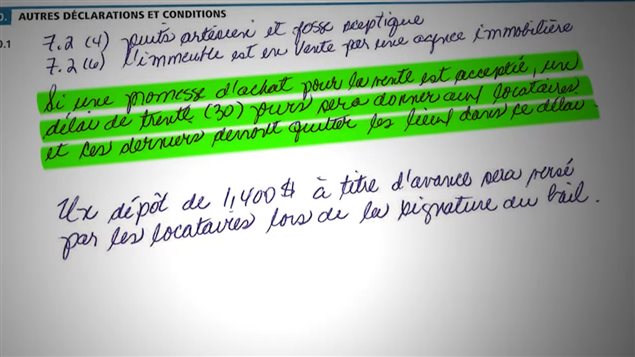 0. AUTRES DÉCLARATIONS ET CONDITIONS
0.1
7.2 (4) puits artésien et fosse sceptique
7.2 (6) l'immeuble est en vente par une agence immobilière
Si une promesse d'achat pour la vente est acceptié, un
délai de trente (30) jours sera donner aux locataires
et ces derniers devront quitter les lieux dans ce délai.
Un dépôt de 1,400$ à titre d'avance sera versé
par les locataires lors de la signature du bail.